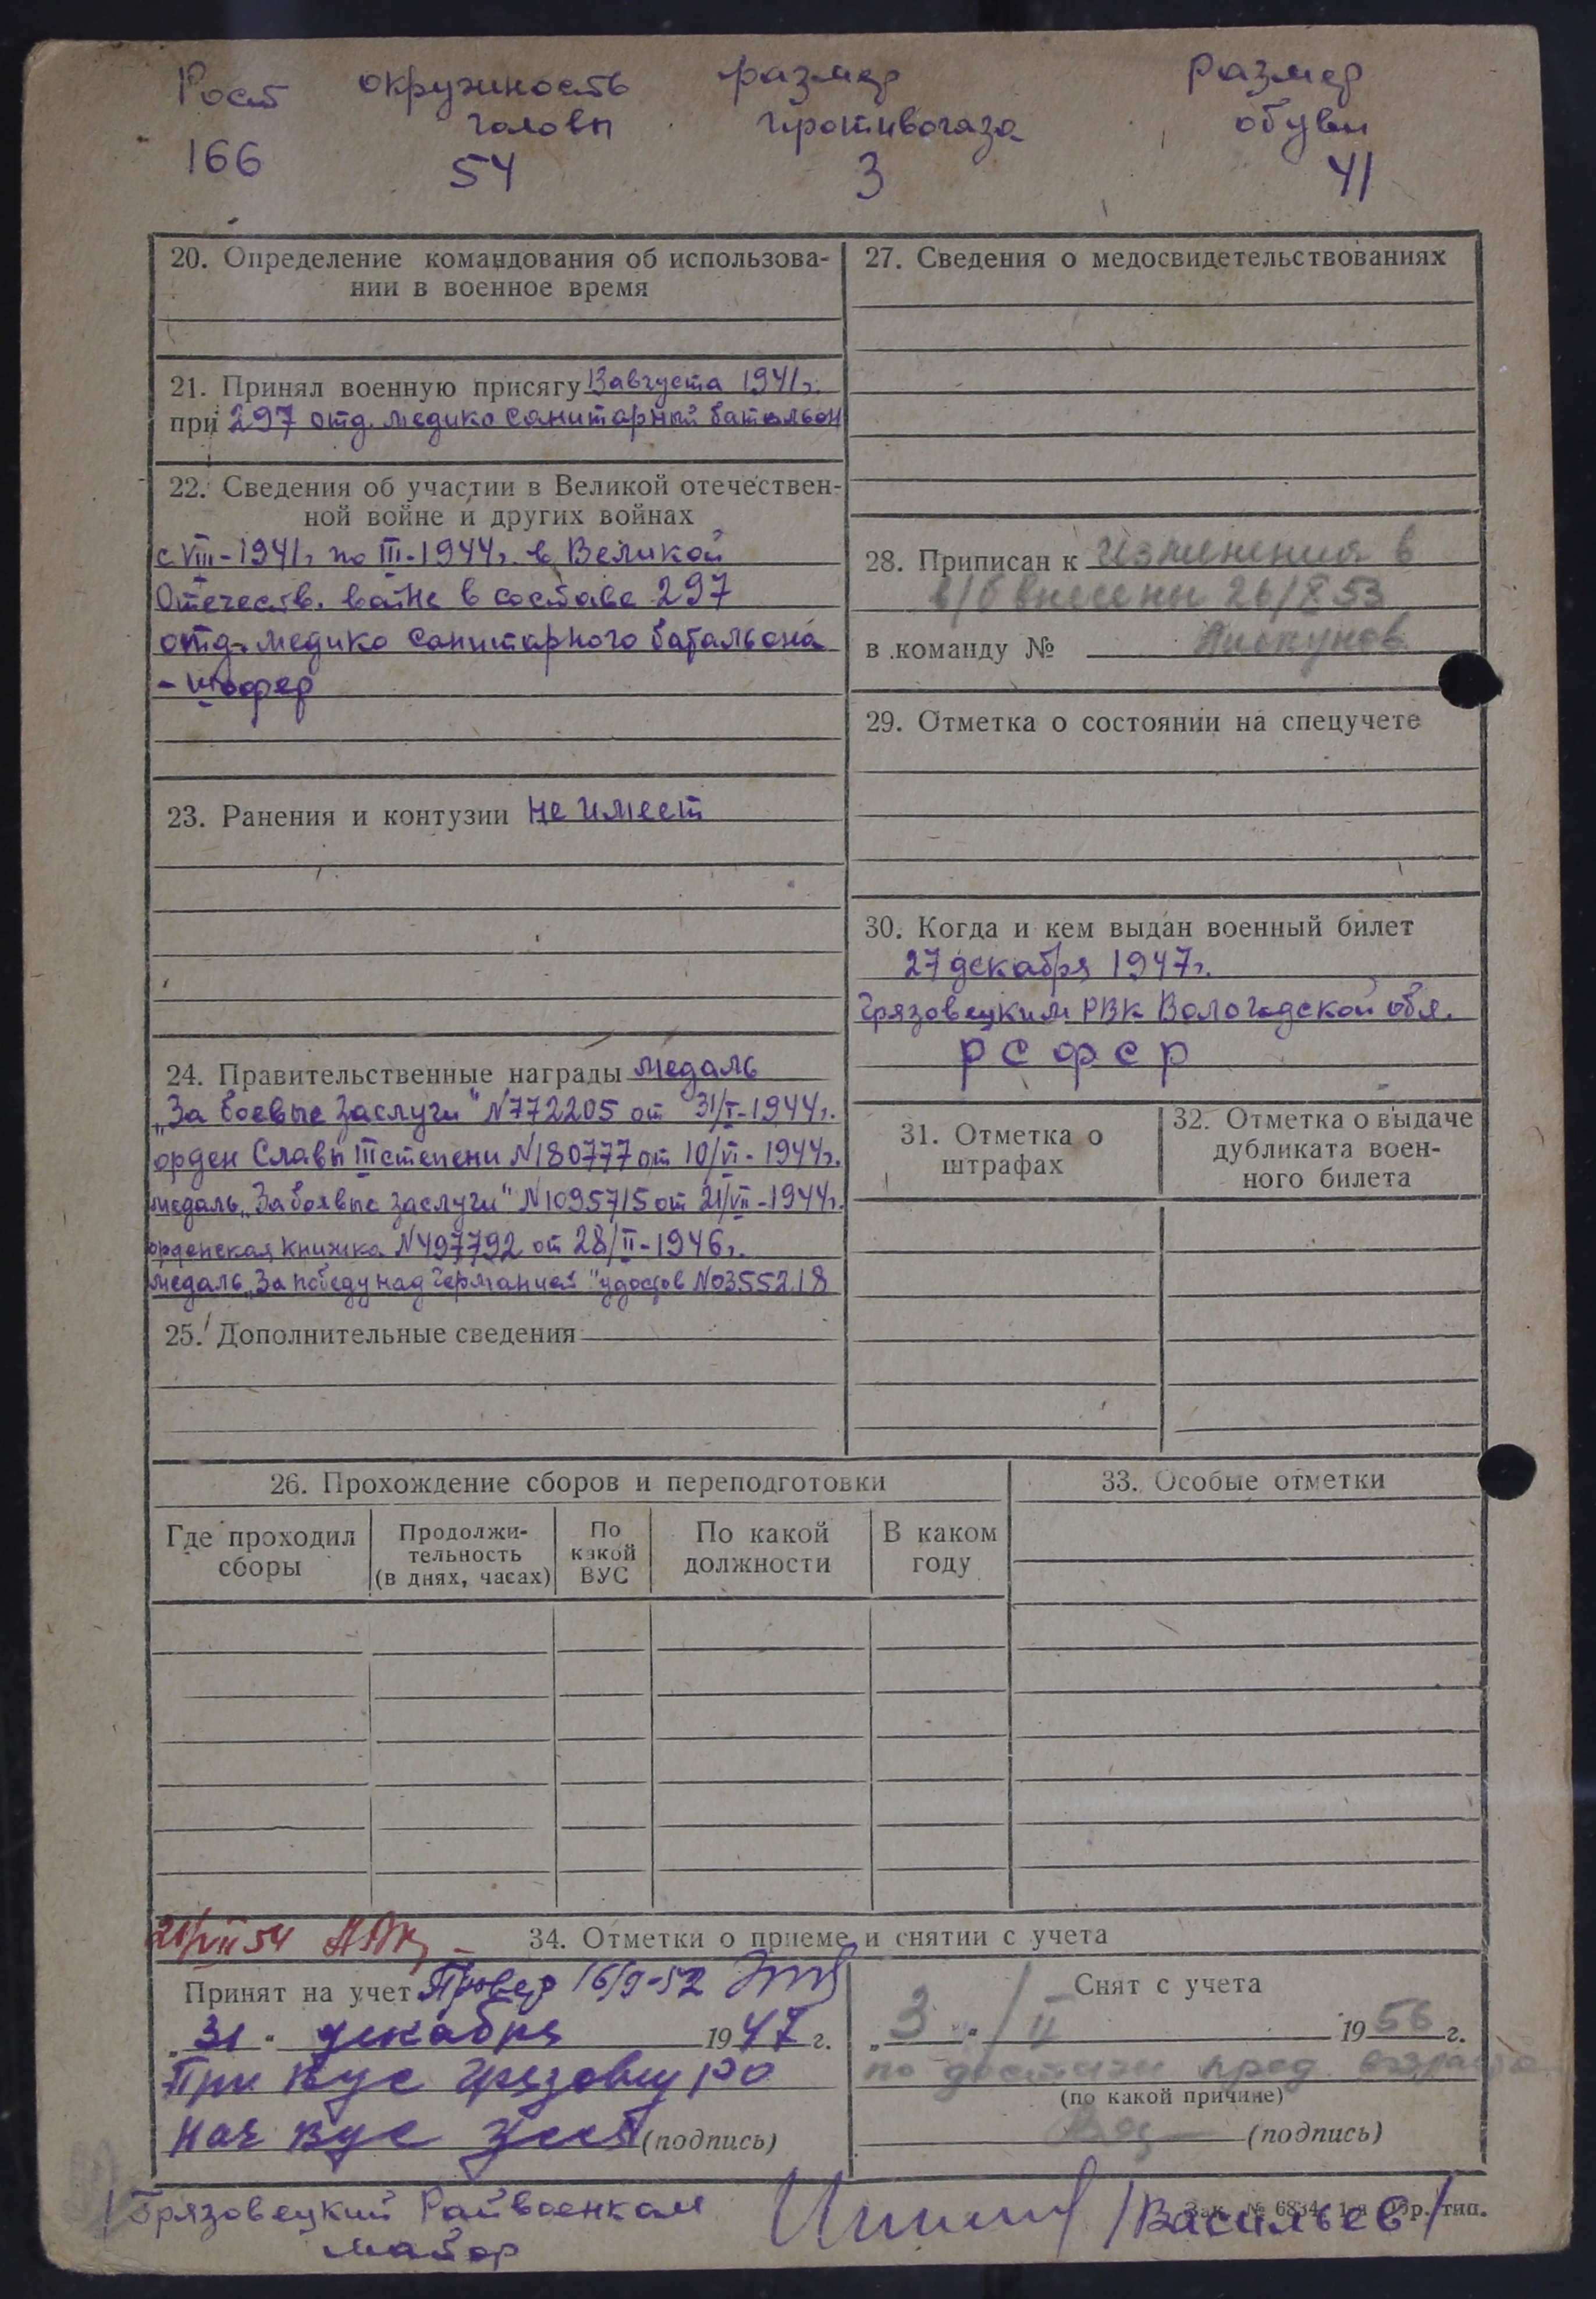 Рост окружность размер размер
головы противогаза обуви
166 54 3 41
20. Определение командования об использова-
нии в военное время
21. Принял военную присягу 13 августа 1941г.
при 297 отд. медико санитарный батальон
22. Сведения об участии в Великой отечествен-
ной войне и других войнах
с VIII-1941г по III-1944г. в Великой
Отечеств. войне в составе 297
отд. медико санитарного батальона
- шофер
23. Ранения и контузии не имеет
24. Правительственные награды медаль
„За боевые заслуги" N772205 от 31/I-1944г.
орден Славы III степени N180777 от 10/VI-1944г.
медаль „За боевые заслуги" N1095715 от 21/VII-1944г.
орденская книжка N497792 от 28/II-1946г.
медаль „За победу над Германией" удостов N0355218
25. Дополнительные сведения
27. Сведения о медосвидетельствованиях
28. Приписан к изменения в
в/б внесены 26/X 53
в команду № Пискунов
29. Отметка о состоянии на спецучете
30. Когда и кем выдан военный билет
27 декабря 1947г.
Грязовецким РВК Вологодской обл.
РСФСР
31. Отметка о
штрафах
32. Отметка о выдаче
дубликата воен-
ного билета
26. Прохождение сборов и переподготовки
Где проходил
сборы
Продолжи-
тельность
(в днях, часах)
По
какой
ВУС
По какой
должности
В каком
году
33. Особые отметки
21/VII 54
34. Отметки о приеме и снятии с учета
Принят на учет Провер 16/9-52
„31" декабря 1947 г.
При ВУС Грязовец РО
Нач ВУС (подпись)
Снят с учета
„3" / II 1956 г.
по достиж пред. возраста
(по какой причине)
(подпись)
Грязовецкий Райвоенком
майор /Васильев/
Зак. № 6834 тип.